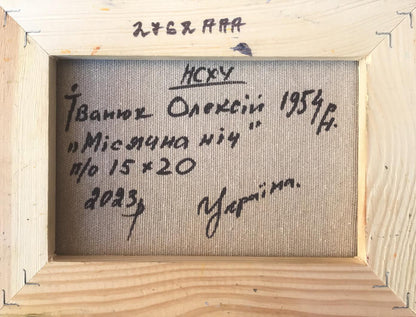 2762ААА
НСХУ
Іванюк Олексій 1954р.н.
„Місячна ніч“
п/о 15×20
2023р
Україна.